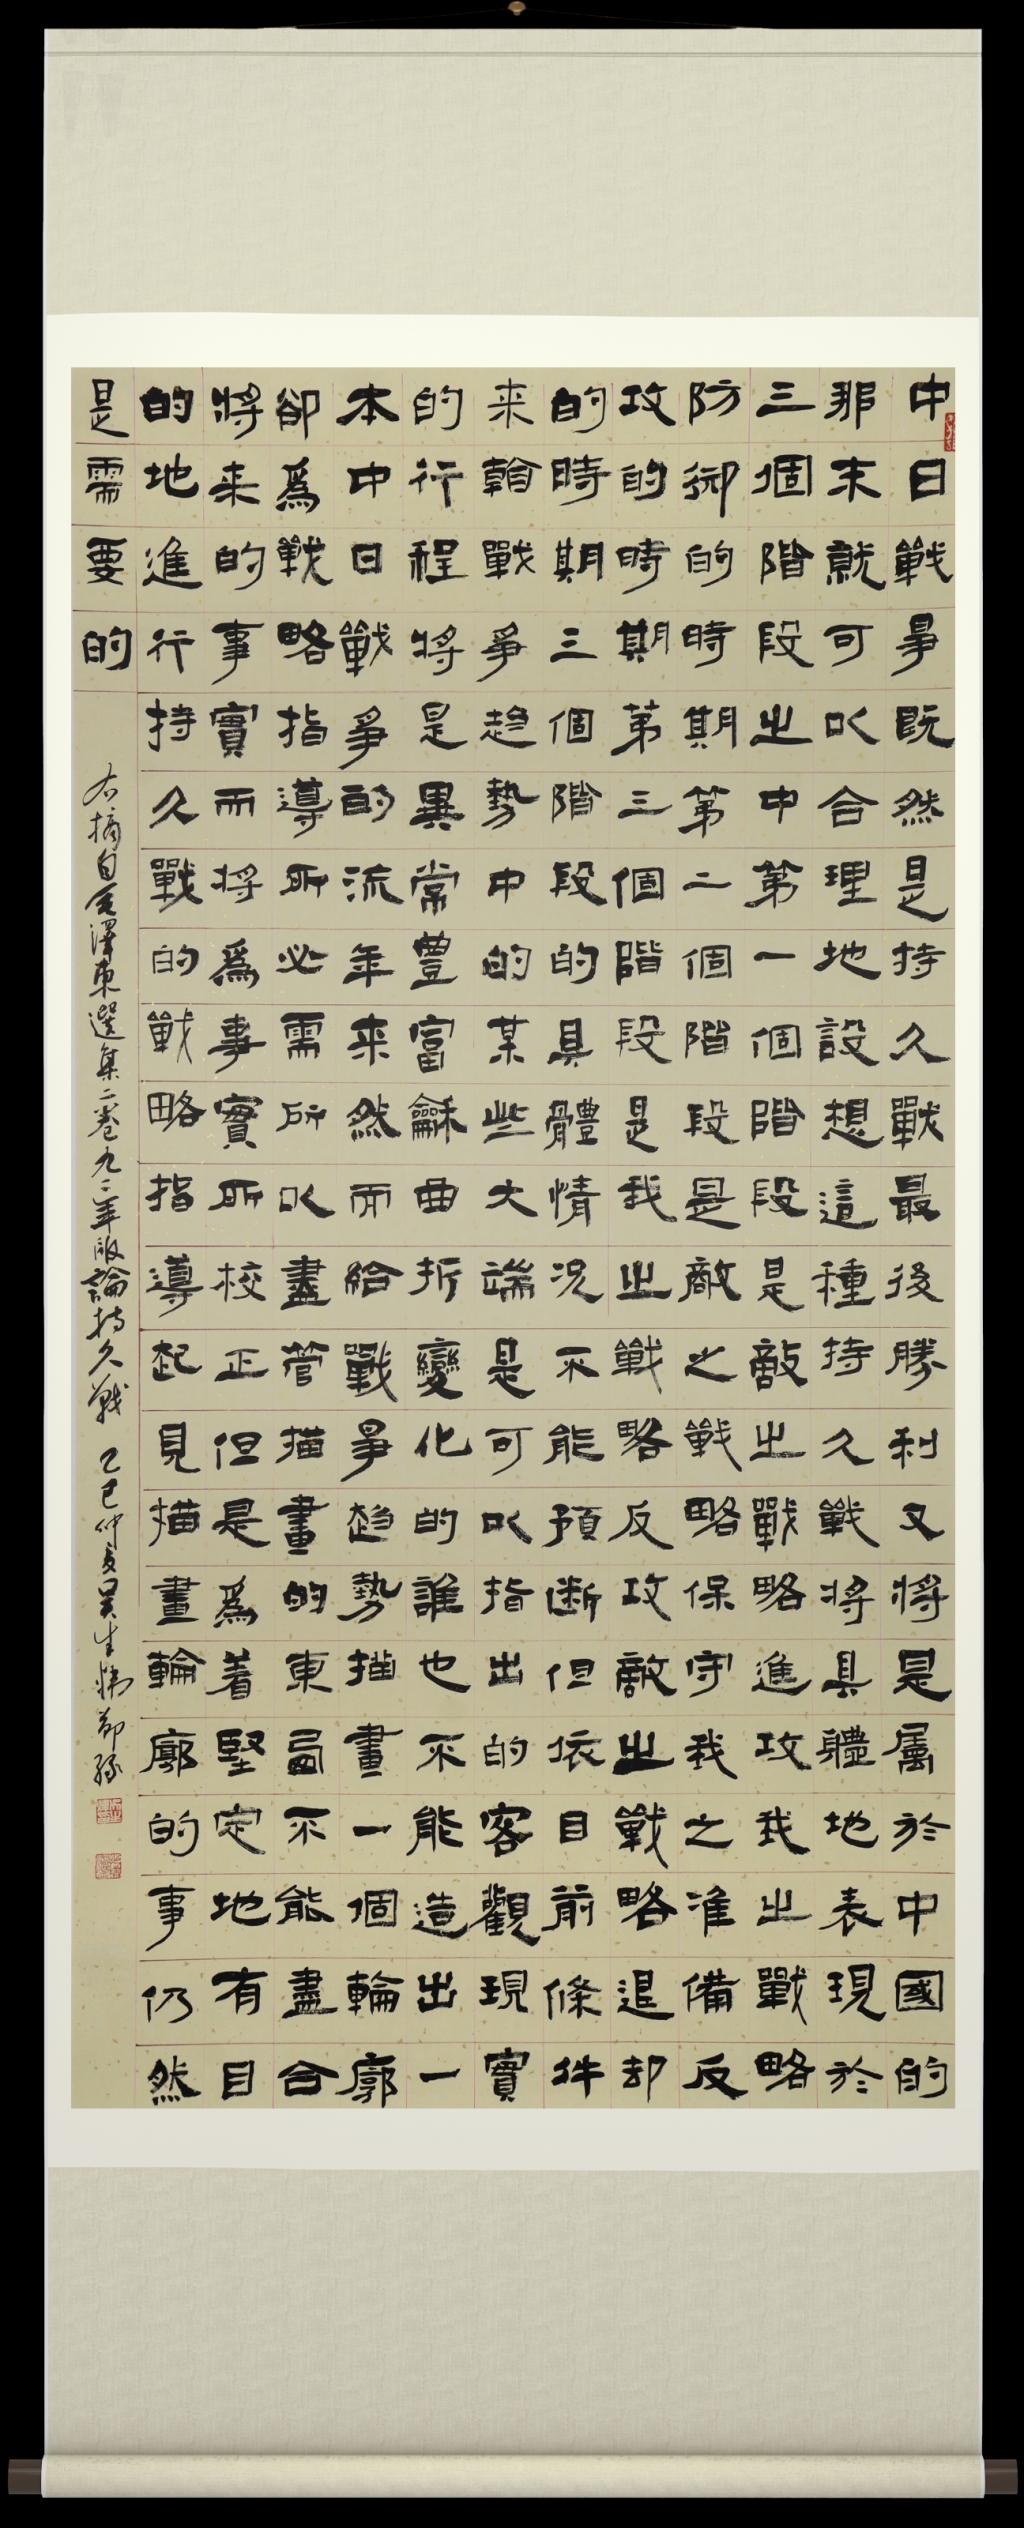 中日戰爭既然是持久戰最後勝利又將是属於中國的
那末就可以合理地設想這種持久戰將具體地表現於
三個階段之中第一個階段是敵之戰略進攻我之戰略
防御的時期第二個階段是敵之戰略保守我之准備反
攻的時期第三個階段是我之戰略反攻敵之戰略退却
的時期三個階段的具體情况不能預断但依目前條件
来看戰爭趋勢中的某些大端是可以指出的客觀現實
的行程將是異常豊富龢曲折變化的誰也不能造出一
本中日戰爭的流年来然而給戰爭趋勢描畫一個輪廓
卻為戰略指導所必需所以盡管描畫的東西不能盡合
將来的事實而將為事實所校正但是為着堅定地有目
的地進行持久戰的戰略指導起見描畫輪廓的事仍然
是需要的
右摘自毛澤東選集二卷九一年版論持久戰 乙巳仲夏吴生炜節録